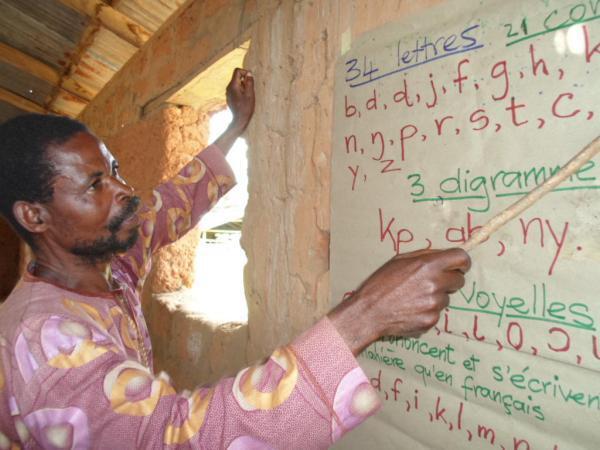 34 lettres
21 con
b, d, ɖ, j, f, g, h, k
n, ŋ, p, r, s, t, c,
y, z
3 digramme
kp, gb, ny.
voyelles
i, ɩ, o, ɔ, u
prononcent et s'écriven
manière qu'en français
d, f, i, k, l, m, n